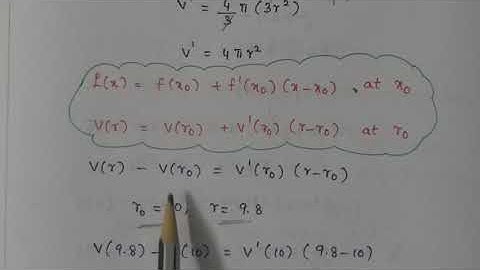 V' = 4/3 π (3r²)
V' = 4πr²
L(x) = f(x₀) + f'(x₀) (x-x₀) , at x₀
V(r) = V(r₀) + V'(r₀) (r-r₀) at r₀
V(r) - V(r₀) = V'(r₀) (r-r₀)
r₀ = 0, r = 9.8
V(9.8) - (10) = V'(10) (9.8-10)